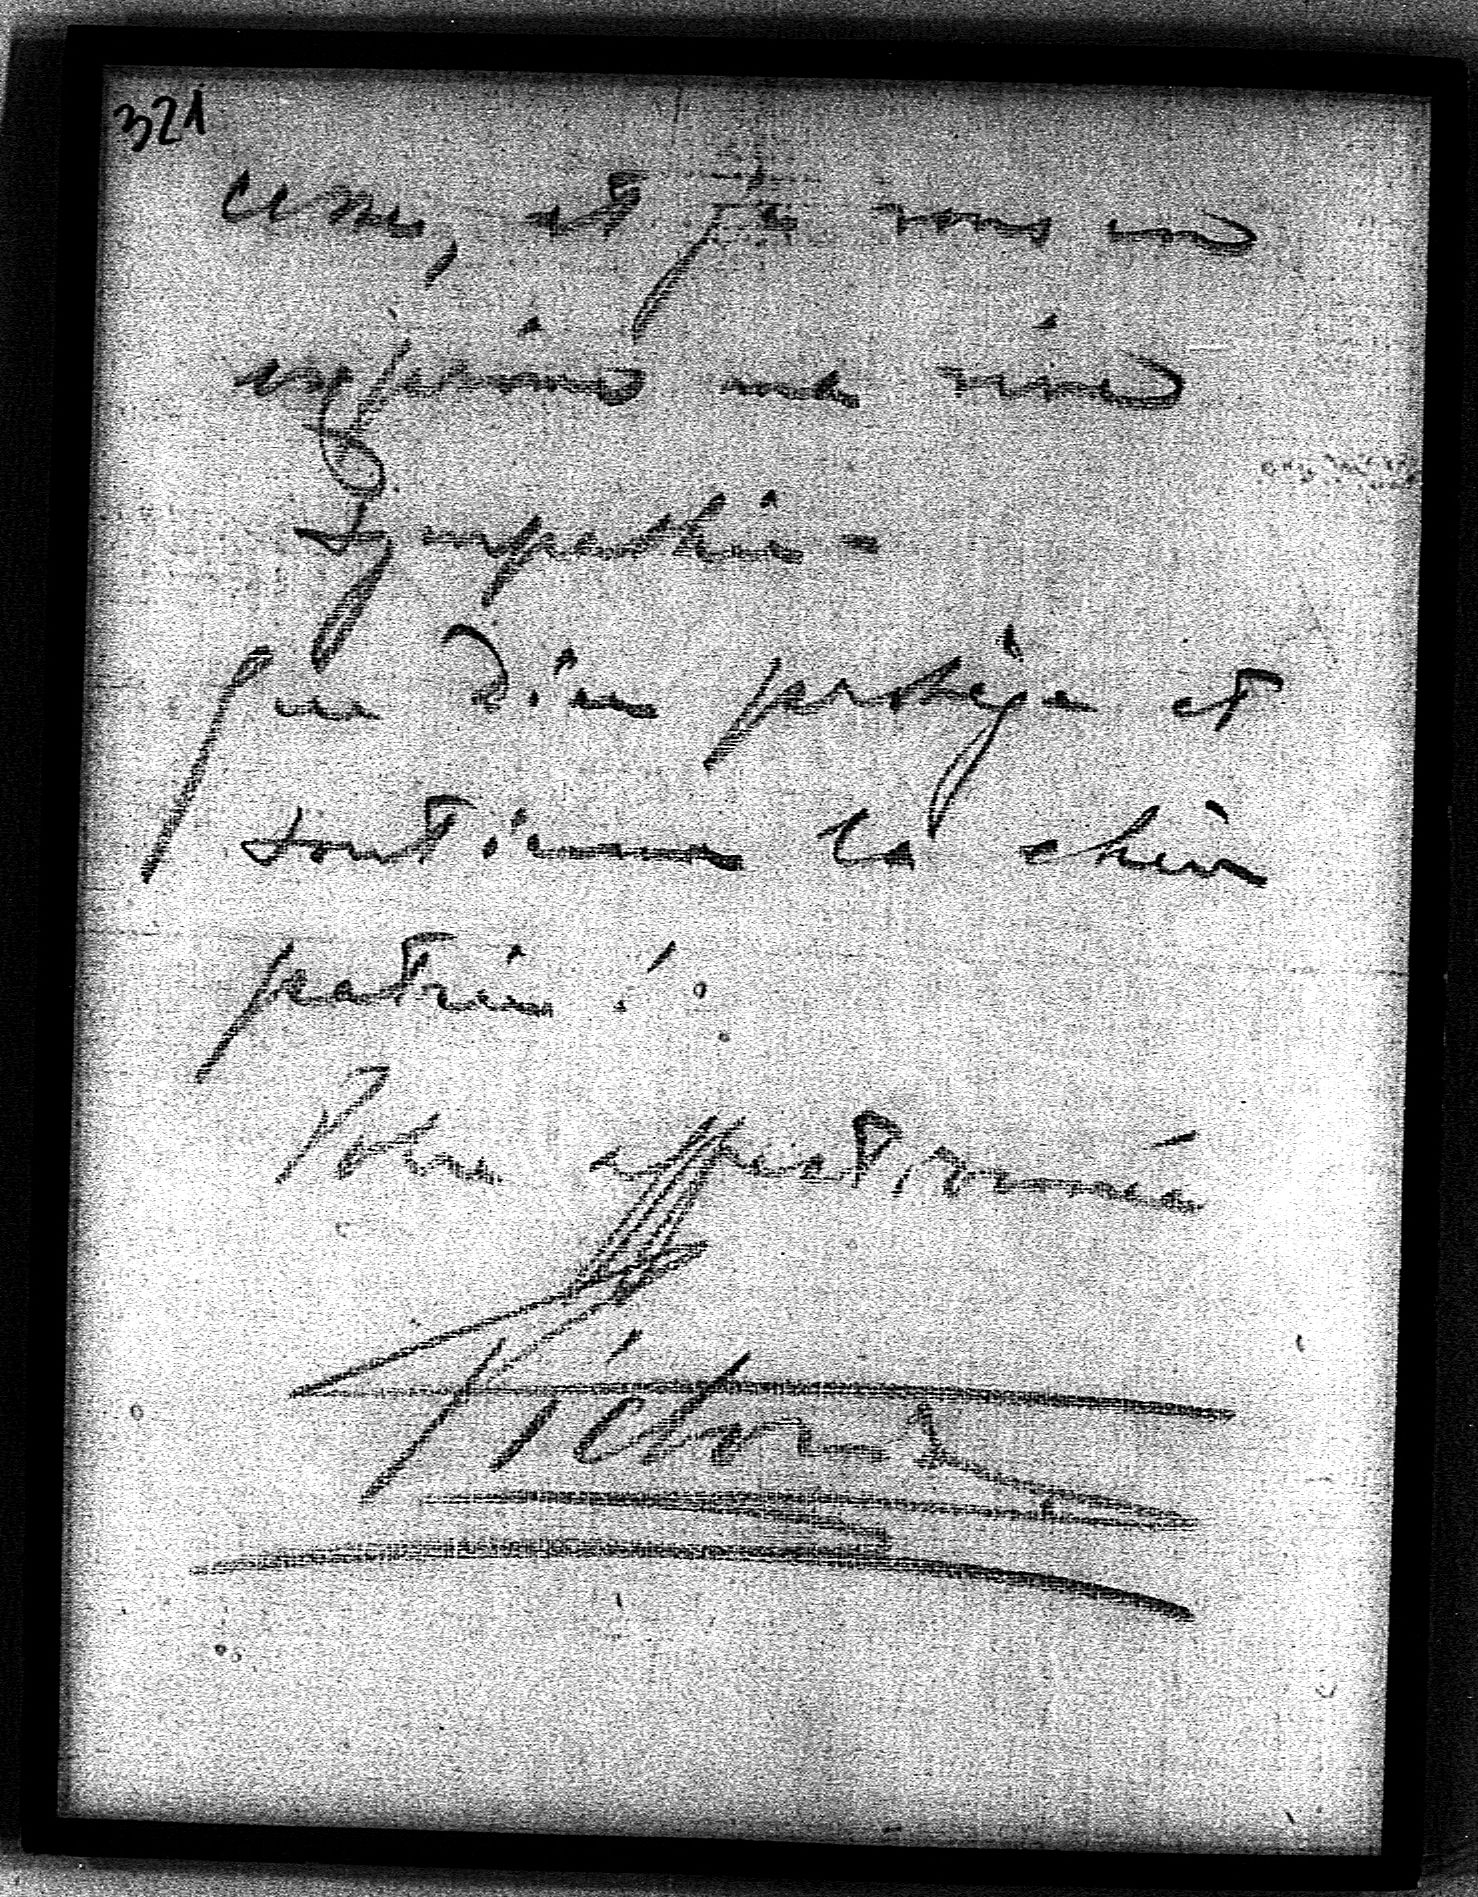 321
et je vous en
exprime ma vive
sympathie -
que Dieu protège et
soutienne la chère
patrie !.
Votre affectionnée
Victoria